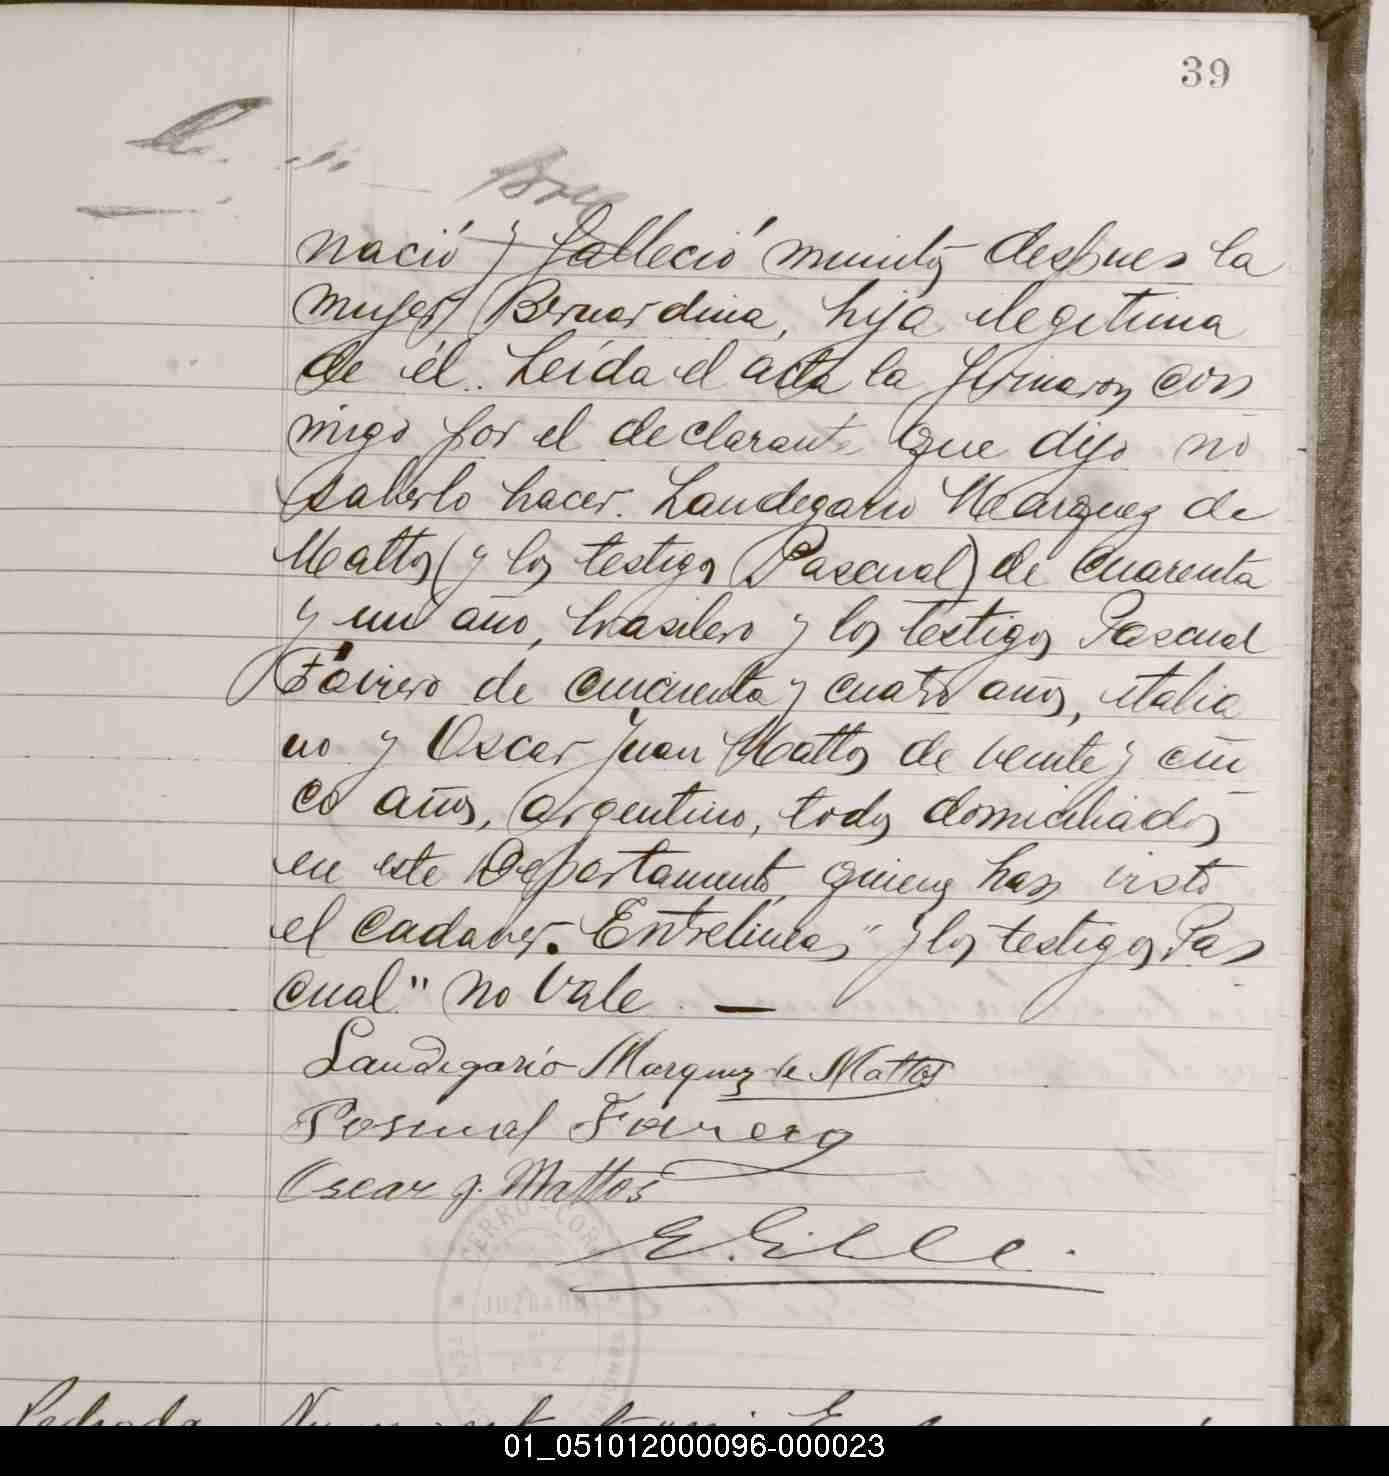 39
nació y falleció minutos despues la
mujer Bernardina, hija ilegitima
de él. Leída el acta la firmaron con
migo por el declarante que dijo no
saberlo hacer. Laudegario Marquez de
Mattos (y los testigos Pascual) de cuarenta
y un año, brasilero y los testigos Pascual
Faviero de cincuenta y cuatro años, italia
no y Oscar Juan Mattos de veinte y cin
co años, argentino, todos domiciliados
en este Departamento, quienes han visto
el cadaver. Entrelineas "y los testigos Pas
cual" no vale. —
Laudegario Marquez de Mattos
Pascual Faviero
Oscar J. Mattos
CERRO CORA
JUZGADO
Pedroda
01_051012000096-000023